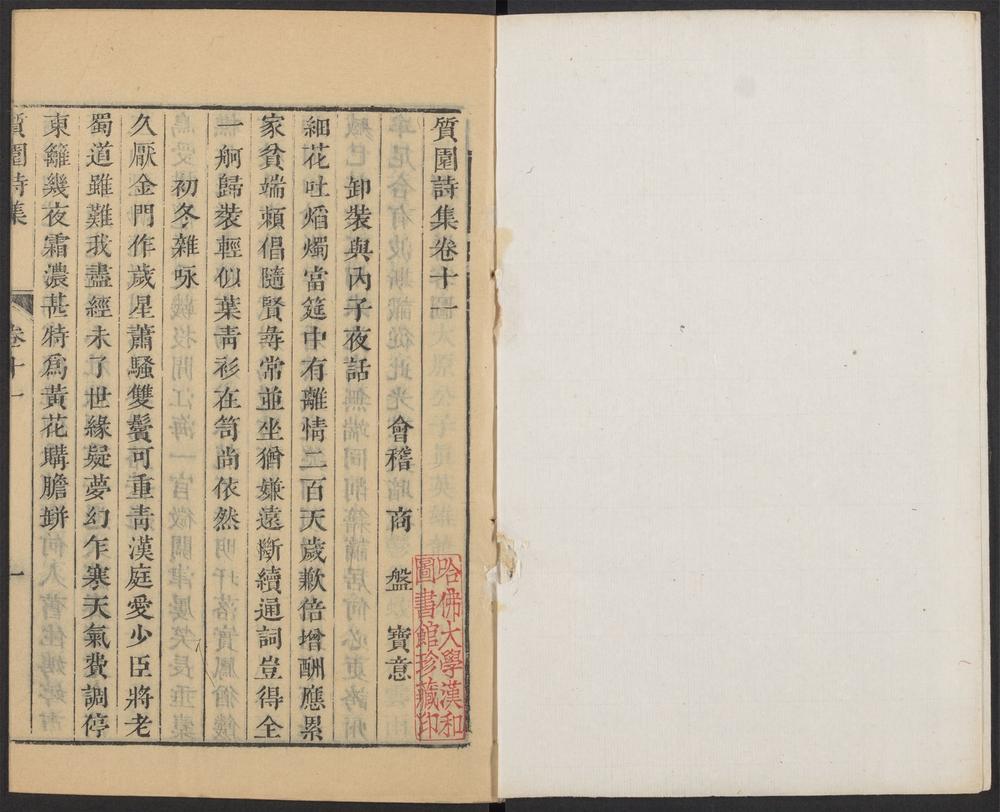 質園詩集卷十一
會稽 商 盤 寶意
卸裝與內子夜話
細花吐熖燭當筵中有離情二百天歲歉倍增酬應累
家貧端頼倡隨賢尋常並坐猶嫌遠斷續通詞豈得全
一舸歸裝輕似葉靑衫在笥尚依然
初冬雜咏
久厭金門作歲星蕭騷雙鬢可重靑漢庭愛少臣將老
蜀道雖難我盡經未了世緣疑夢幻乍寒天氣費調停
東籬幾夜霜濃甚特爲黃花購膽缾
質園詩集
卷十一
一
哈佛大學漢和
圖書館珍藏印